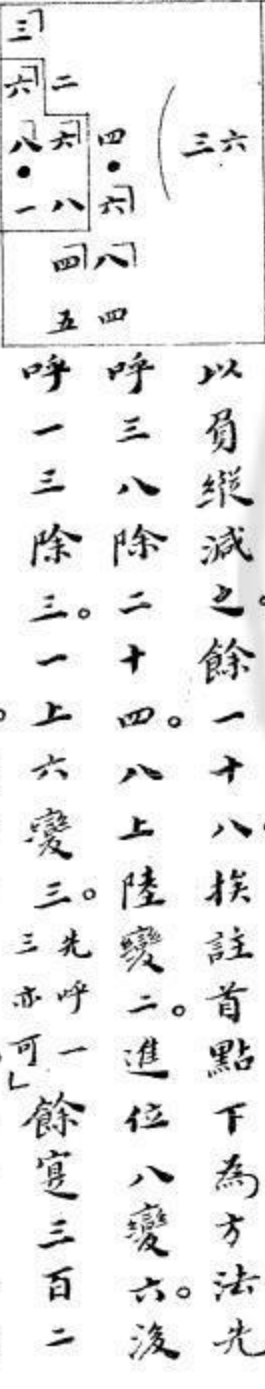 六
三
四●六八四
二六八四五
三六八●一
以負縱減之。餘一十八。挨註首點下為方法先
呼三八除二十四。八上陸變二。進位八變六。後
呼一三除三。一上六變三。先呼一三亦可」餘寔三百二